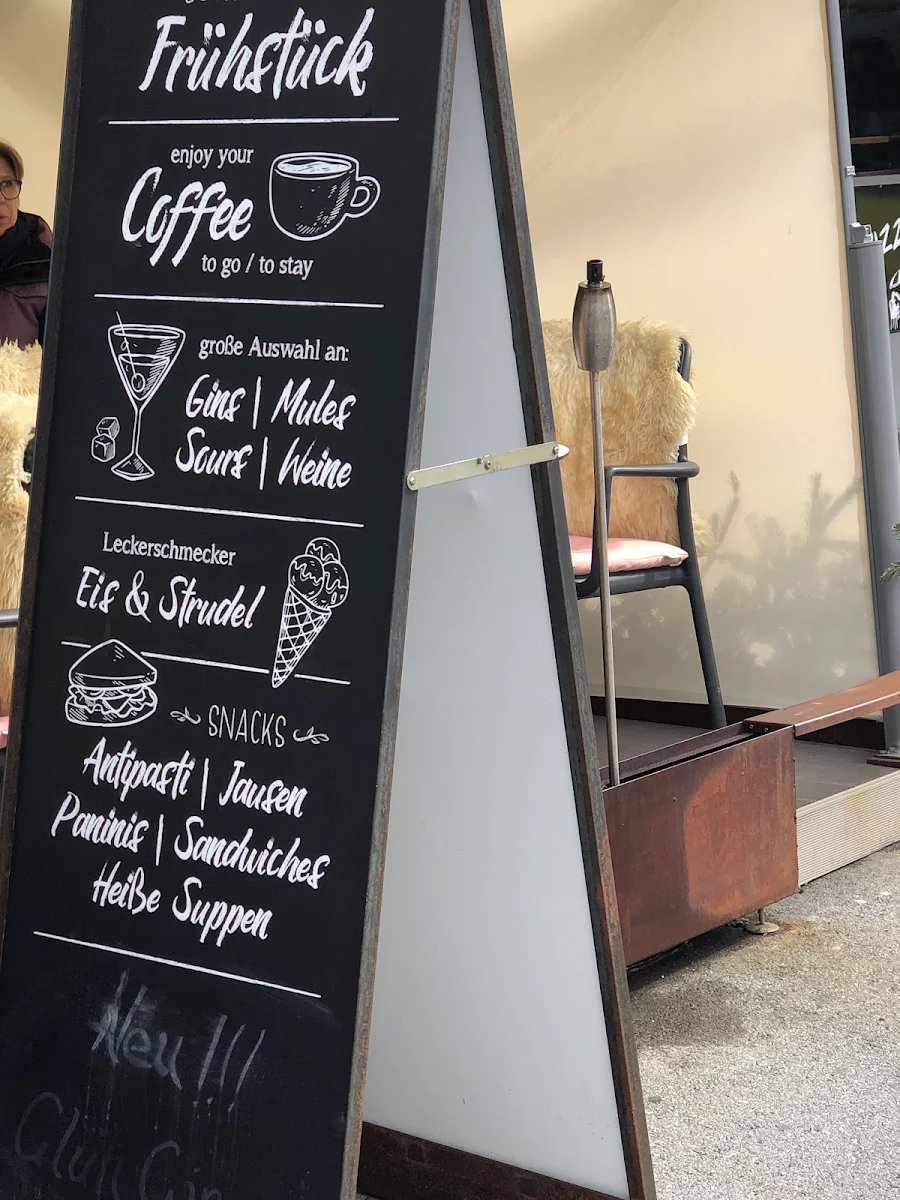 Frühstück
enjoy your
Coffee
to go / to stay
große Auswahl an:
Gins | Mules
Sours | Weine
Leckerschmecker
Eis & Strudel
SNACKS
Antipasti | Jausen
Paninis | Sandwiches
Heiße Suppen
Neu !!!